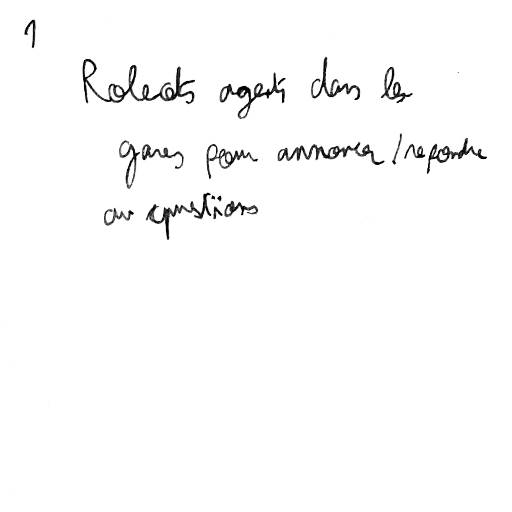 1
Robots agents dans les
gares pour annoncer / repondre
au questions